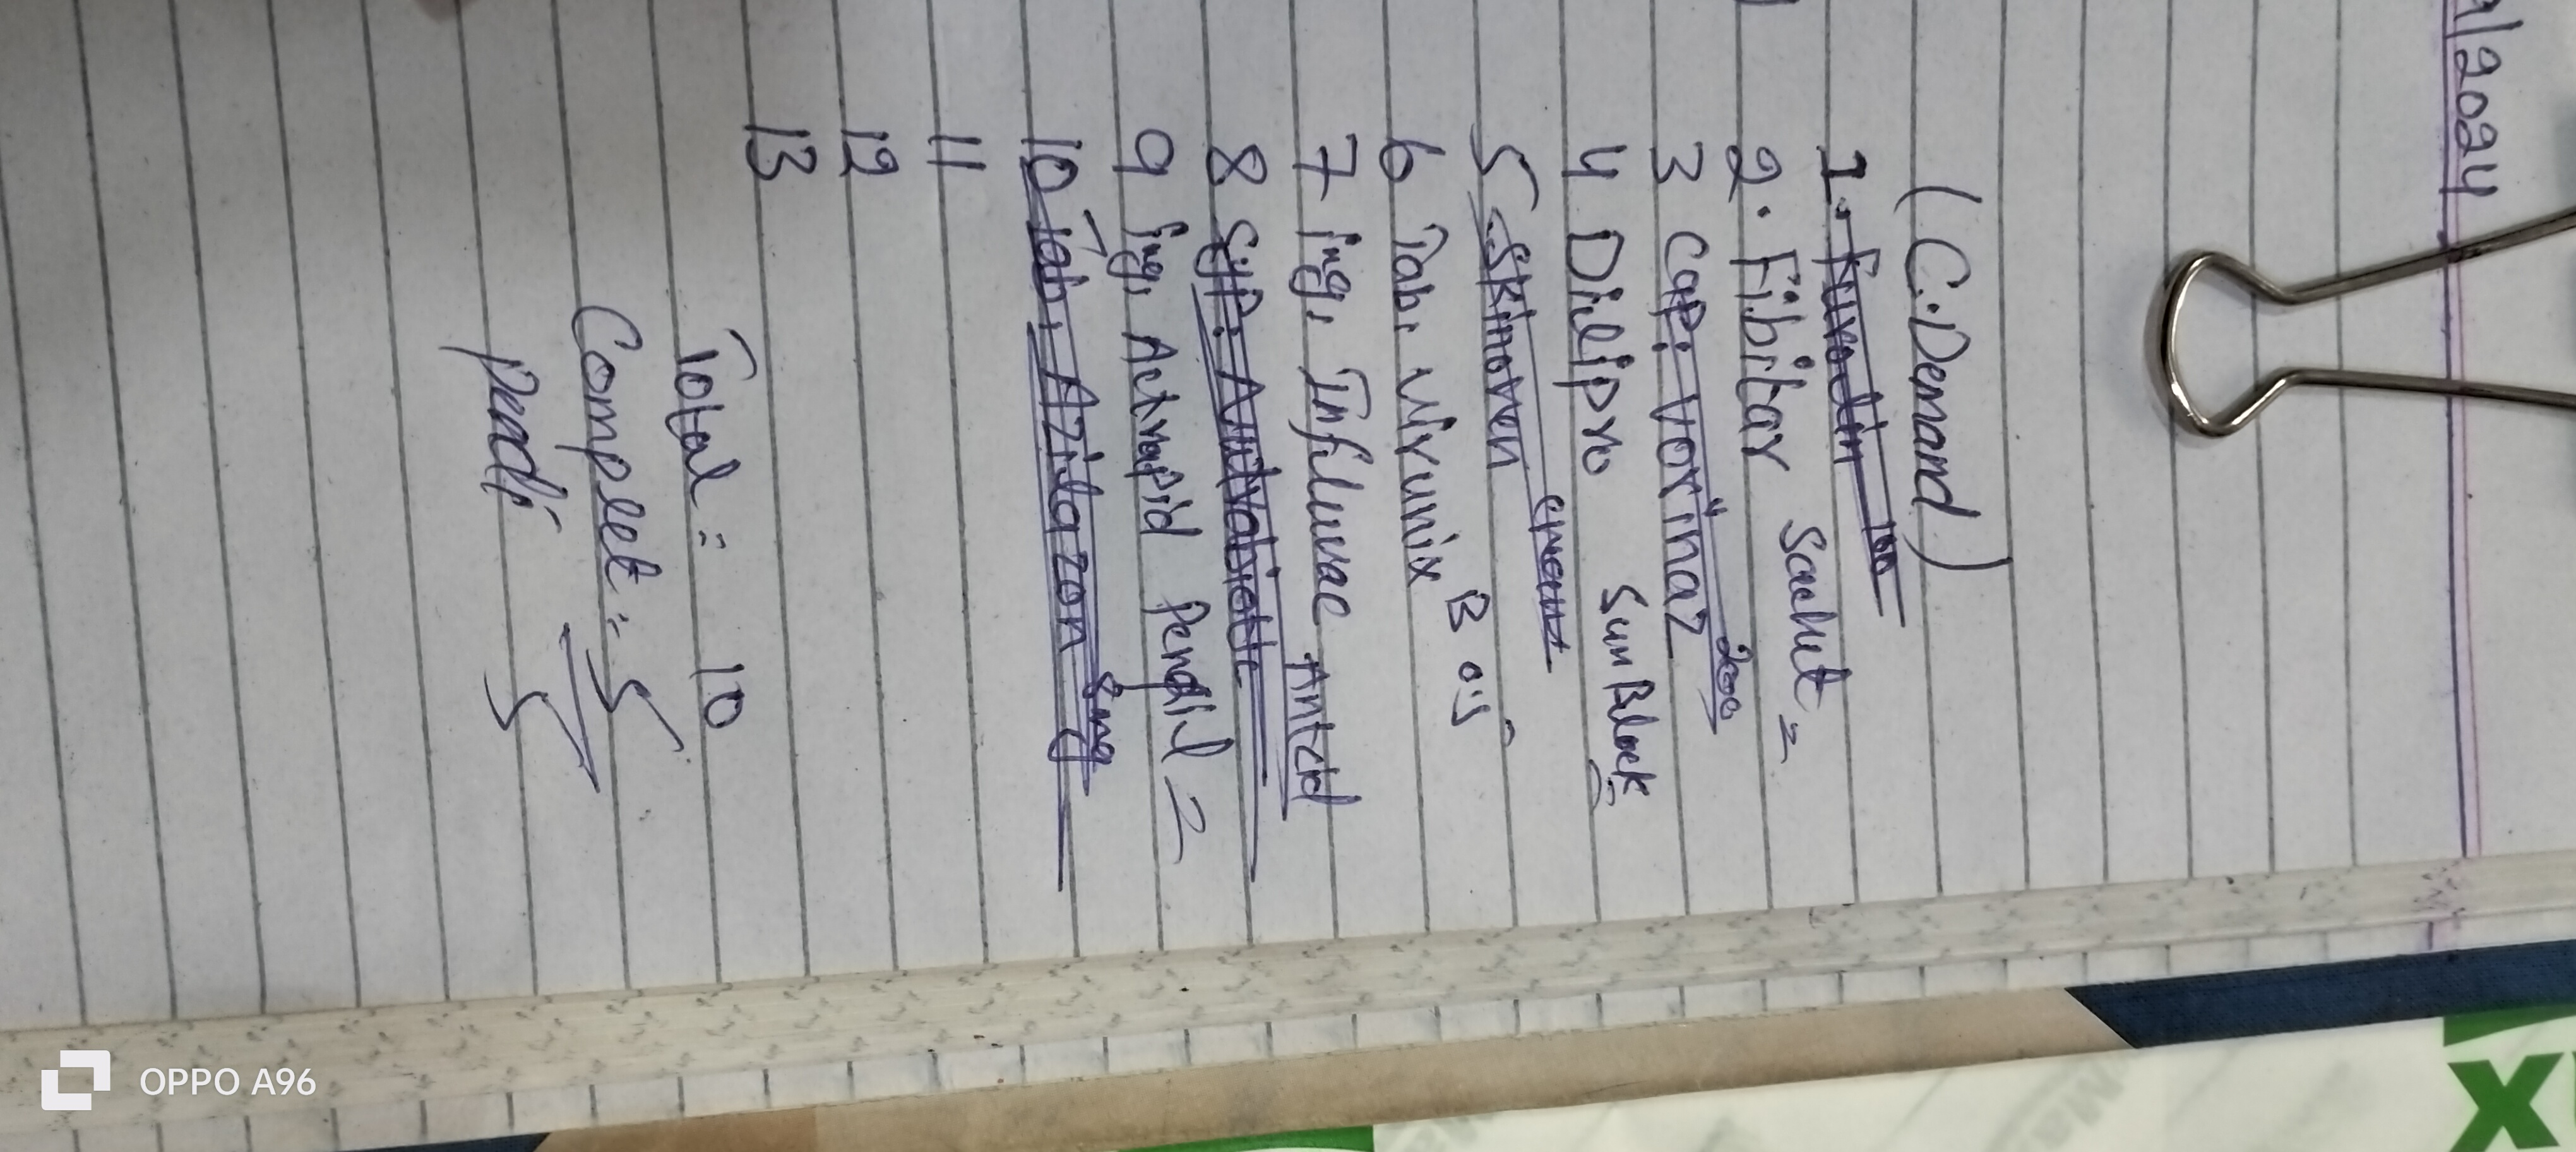 /2024
(C.Demand)
1.
2. Fibitar Sachet =
3 Cap: Vorinaz 200
4 Dilipro Sun Block
5 Skinoven cream
6 Tab. Mirunix B 0.5
7 Inj, Influvac Antcd
8 Syp:
9 Inj, Actrapid Penfil 2
10 Tab. Azilazon 8mg
11
12
13
Total = 10
Complet = 5
pendi 5
OPPO A96
X